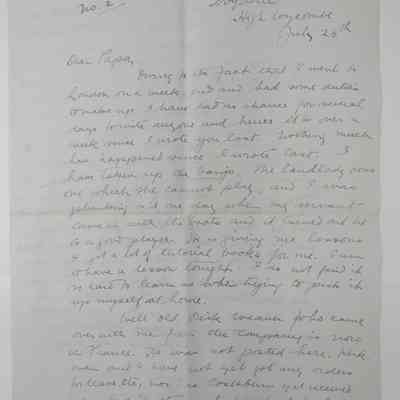 No. 2
High Wycombe
July 20th
Dear Papa,
Owing to the fact that I went to
London on a week end and had some duties
to make up I have had no chance for several
days to write anyone and hence it is over a
week since I wrote you last. Nothing much
has happened since I wrote last. I
have taken up the banjo. The landlady owns
one which she cannot play, and I was
one day when my servant
came in with the boots and it turned out he
is a good player. He is giving me lessons
& got a lot of tutorial books for me. I am
to have a lesson tonight. I do not find it
so hard to learn as when trying to pick it
up myself at home.
Well old Dick who came
over with me from the Company is now
in France. He was not posted here.
and I have not yet got any orders
to leave, nor has yet received